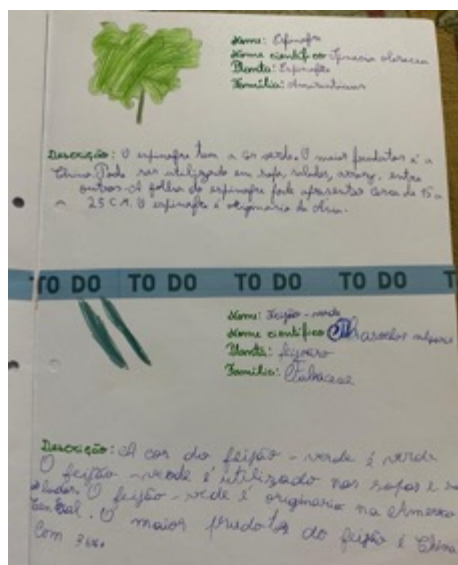 Nome: Espinafre
Nome científico Spinacia oleracea
Planta: Espinafre
Família:
Descrição: O espinafre tem a cor verde. O maior produtor é a
China. Pode ser utilizado em sopa, saladas, arroz, entre
outros. A folha do espinafre pode apresentar cerca de 15 a
25 CM. O espinafre é originário da Ásia.
TO DO TO DO TO DO TO DO T
Nome: Feijão-verde
Nome científico
Planta: feijoeiro
Família: Fabaceae
Descrição: A cor do feijão-verde é verde
O feijão-verde é utilizado nas sopas e sa
ladas. O feijão-verde é originario na America
Central. O maior produtor do feijão é China
Com